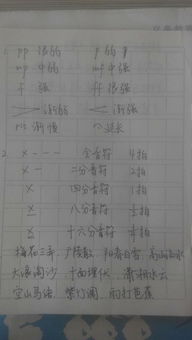 1. pp 很弱 p 弱
mp 中弱 mf 中强
f 强 ff 很强
> 渐弱 < 渐强
rit 渐慢 延长
2. X - - - 全音符 4拍
X - 二分音符 2拍
X 四分音符 1拍
X 八分音符 1/2拍
X 十六分音符 1/4拍
梅花三弄 广陵散 阳春白雪 高山流水
大浪淘沙 十面埋伏 潇湘水云
空山鸟语 紫竹调 雨打芭蕉